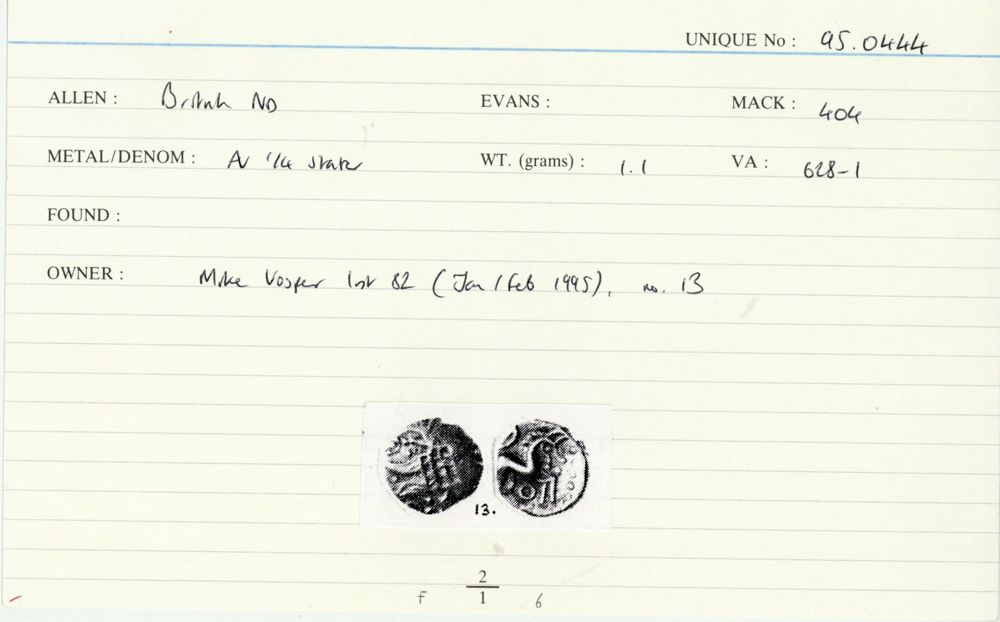 UNIQUE No : 95.0444
ALLEN : British ND EVANS : MACK : 404
METAL/DENOM : AV 1/4 stater WT. (grams) : 1.1 VA : 628-1
FOUND :
OWNER : Mike Vosper list 82 (Jan/Feb 1995), no. 13
13.
2
f 1 6